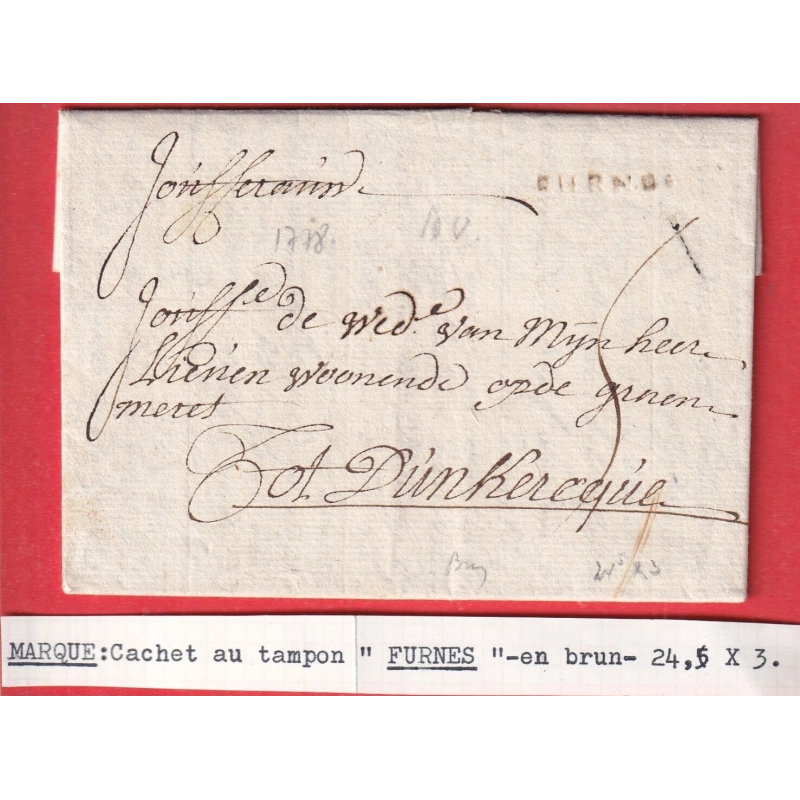 Jouffrauw
FURNES
1778.
Jouff.e de wed.e van Mÿn heer
woonende op de groen
meret
Tot Dunkercque
MARQUE:Cachet au tampon " FURNES "-en brun- 24,5 X 3.